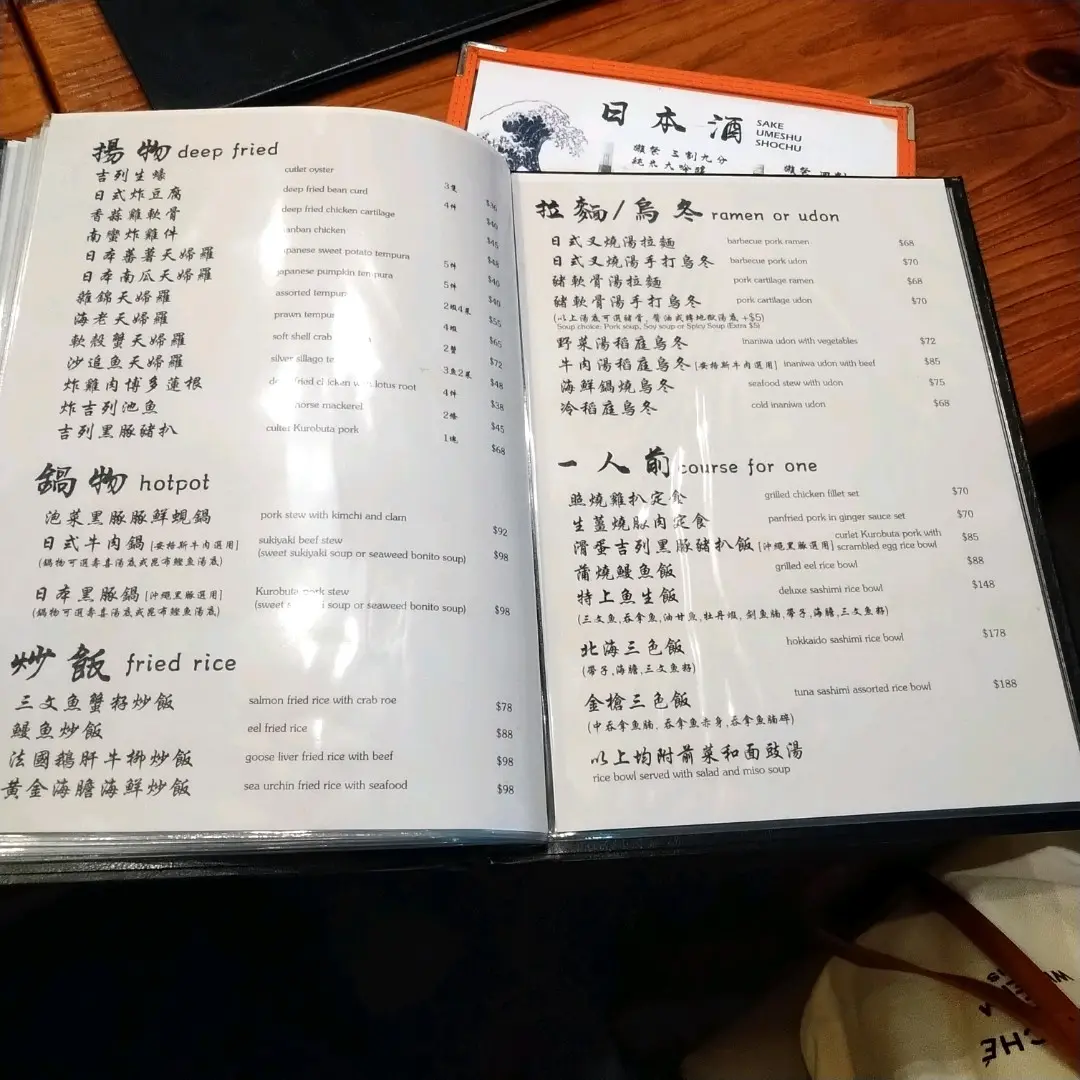 日本酒
SAKE
UMESHU
SHOCHU
獺祭 三割九分
純米大吟醸
揚物 deep fried
吉列生蠔 cutlet oyster 3隻 $36
日式炸豆腐 deep fried bean curd 4件 $40
香蒜雞軟骨 deep fried chicken cartilage $45
南蠻炸雞件 nanban chicken $48
日本蕃薯天婦羅 japanese sweet potato tempura 5件 $40
日本南瓜天婦羅 japanese pumpkin tempura 5件 $40
雜錦天婦羅 assorted tempura 2蝦4菜 $55
海老天婦羅 prawn tempura 4蝦 $65
軟殼蟹天婦羅 soft shell crab 2蟹 $72
沙追魚天婦羅 silver sillago te 3魚2菜 $48
炸雞肉博多蓮根 deep fried chicken with lotus root 4件 $38
炸吉列池魚 horse mackerel 2條 $45
吉列黑豚豬扒 cutlet Kurobuta pork 1塊 $68
鍋物 hotpot
泡菜黑豚豚鮮蜆鍋 pork stew with kimchi and clam $92
日式牛肉鍋 [安格斯牛肉選用] sukiyaki beef stew $98
(鍋物可選壽喜湯底或昆布鰹魚湯底) (sweet sukiyaki soup or seaweed bonito soup)
日本黑豚鍋 [沖繩黑豚選用] Kurobuta pork stew
(鍋物可選壽喜湯底或昆布鰹魚湯底) (sweet sukiyaki soup or seaweed bonito soup) $98
炒飯 fried rice
三文魚蟹籽炒飯 salmon fried rice with crab roe $78
鰻魚炒飯 eel fried rice $88
法國鵝肝牛柳炒飯 goose liver fried rice with beef $98
黃金海膽海鮮炒飯 sea urchin fried rice with seafood $98
拉麵/烏冬 ramen or udon
日式叉燒湯拉麵 barbecue pork ramen $68
日式叉燒湯手打烏冬 barbecue pork udon $70
豬軟骨湯拉麵 pork cartilage ramen $68
豬軟骨湯手打烏冬 pork cartilage udon $70
(以上湯底可選豬骨, 醬油或轉地獄湯底 +$5)
Soup choice: Pork soup, Soy soup or Spicy Soup (Extra $5)
野菜湯稻庭烏冬 inaniwa udon with vegetables $72
牛肉湯稻庭烏冬 [安格斯牛肉選用] inaniwa udon with beef $85
海鮮鍋燒烏冬 seafood stew with udon $75
冷稻庭烏冬 cold inaniwa udon $68
一人前 course for one
照燒雞扒定食 grilled chicken fillet set $70
生薑燒豚肉定食 panfried pork in ginger sauce set $70
滑蛋吉列黑豚豬扒飯 [沖繩黑豚選用] curlet Kurobuta pork with scrambled egg rice bowl $85
蒲燒鰻魚飯 grilled eel rice bowl $88
特上魚生飯 deluxe sashimi rice bowl $148
(三文魚,吞拿魚,油甘魚,牡丹蝦,劍魚腩,帶子,海膽,三文魚籽)
北海三色飯 hokkaido sashimi rice bowl $178
(帶子,海膽,三文魚籽)
金槍三色飯 tuna sashimi assorted rice bowl $188
(中吞拿魚腩,吞拿魚赤身,吞拿魚腩碎)
以上均附前菜和面豉湯
rice bowl served with salad and miso soup
CHÉ